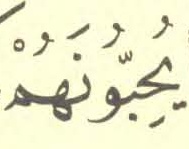 يُحِبُّونَهُمْ